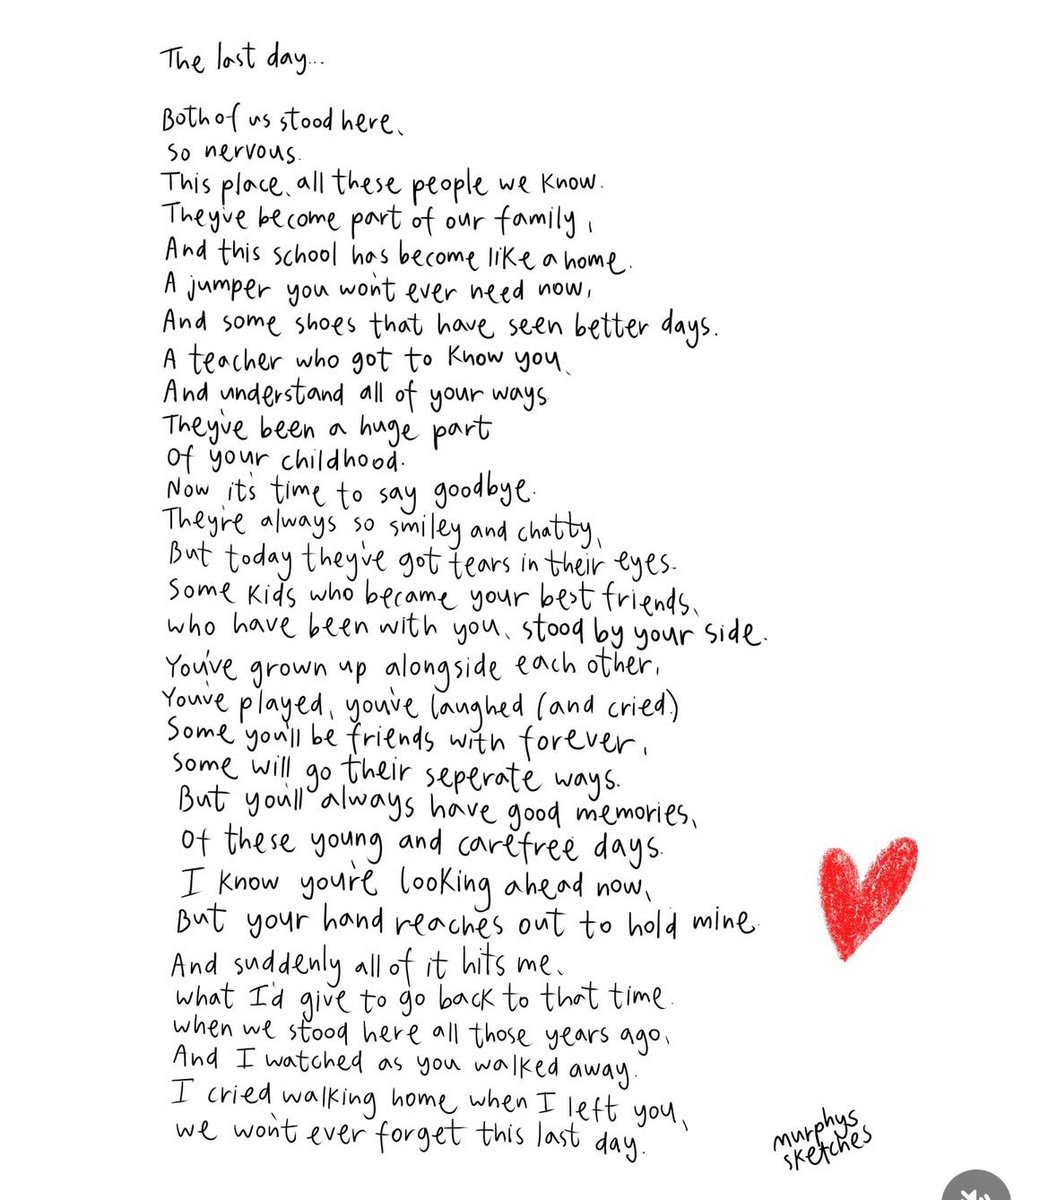 The last day...
Both of us stood here,
so nervous.
This place, all these people we know.
They've become part of our family,
And this school has become like a home.
A jumper you won't ever need now,
And some shoes that have seen better days.
A teacher who got to know you,
And understand all of your ways
They've been a huge part
Of your childhood.
Now it's time to say goodbye.
They're always so smiley and chatty,
But today they've got tears in their eyes.
Some kids who became your best friends,
who have been with you, stood by your side.
You've grown up alongside each other,
You've played, you've laughed (and cried.)
Some you'll be friends with forever,
Some will go their seperate ways.
But you'll always have good memories,
Of these young and carefree days.
I know you're looking ahead now,
But your hand reaches out to hold mine.
And suddenly all of it hits me,
what I'd give to go back to that time.
when we stood here all those years ago,
And I watched as you walked away.
I cried walking home when I left you,
we won't ever forget this last day.
murphys
sketches